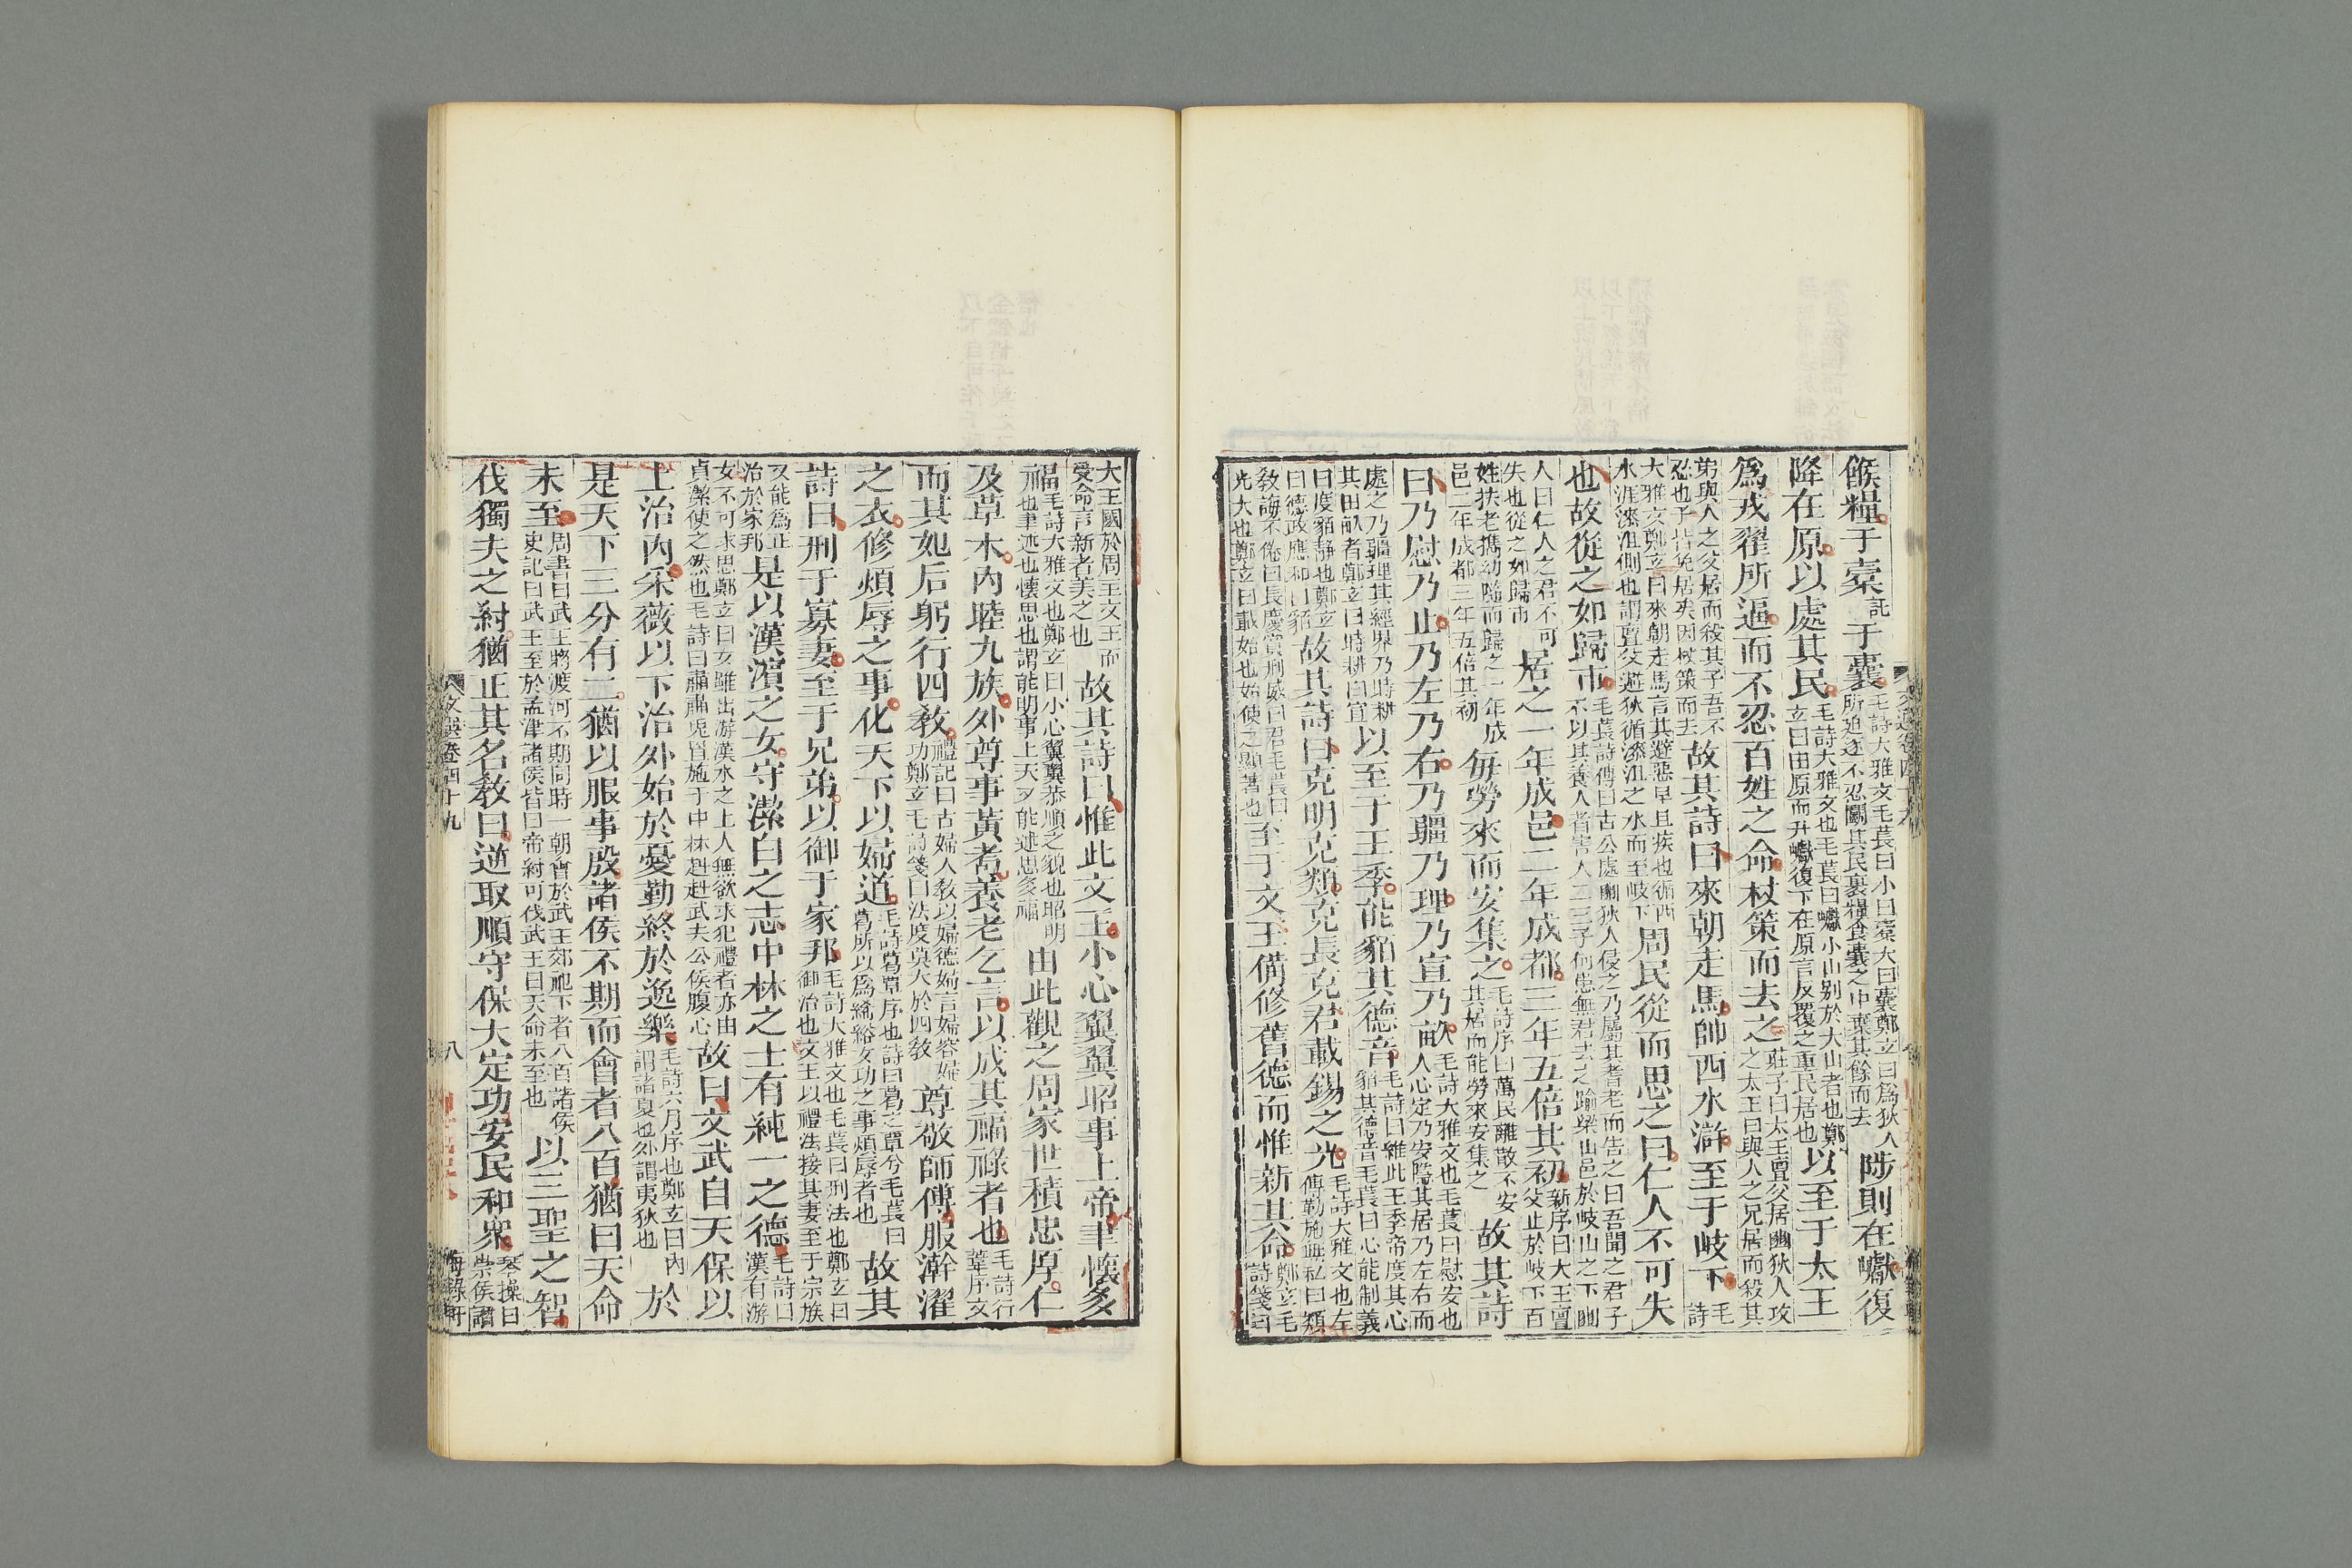 餱糧于橐託于囊毛詩大雅文毛萇曰小曰橐大曰囊鄭玄曰爲狄人所迫逐不忍鬭其民裹糧食囊之中棄其餘而去陟則在巘復
降在原以處其民毛詩大雅文也毛萇曰巘小山别於大山者也鄭玄曰田原而升巘復下在原言反覆之重民居也以至于太王
爲戎翟所逼而不忍百姓之命杖策而去之莊子曰太王亶父居豳狄人攻之太王曰與人之兄居而殺其
弟與人之父居而殺其子吾不忍也子皆免居矣因杖策而去故其詩曰來朝走馬帥西水滸至于岐下毛詩
大雅文鄭玄曰來朝走馬言其避惡早且疾也循西水涯漆沮側也謂亶父避狄循漆沮之水而至岐下周民從而思之曰仁人不可失
也故從之如歸市毛萇詩傳曰古公處豳狄人侵之乃屬其耆老而告之曰吾聞之君子不以其養人者害人二三子何患無君去之踰梁山邑於岐山之下豳
人曰仁人之君不可失也從之如歸市居之一年成邑二年成都三年五倍其初新序曰大王亶父止於岐下百
姓扶老攜幼隨而歸之一年成邑二年成都三年五倍其初每勞來而安集之毛詩序曰萬民離散不安其居而能勞來安集之故其詩
曰乃慰乃止乃左乃右乃疆乃理乃宣乃畝毛詩大雅文也毛萇曰慰安也人心定乃安隱其居乃左右而
處之乃疆理其經界乃時耕其田畝者鄭玄曰時耕曰宣以至于王季能貊其德音毛詩曰維此王季帝度其心貊其德音毛萇曰心能制義
曰度貊靜也鄭玄曰德政應和曰貊故其詩曰克明克類克長克君載錫之光毛詩大雅文也左傳勤施無私曰類
教誨不倦曰長慶賞刑威曰君毛萇曰光大也鄭玄曰載始也始使之顯著也至于文王備修舊德而惟新其命鄭玄毛詩箋曰
大王國於周王文王而受命言新者美之也故其詩曰惟此文王小心翼翼昭事上帝聿懷多
福毛詩大雅文也鄭玄曰小心翼翼恭順之貌也昭明也聿述也懷思也謂能明事上天又能述思多福由此觀之周家世積忠厚仁
及草木内睦九族外尊事黃耇養老乞言以成其福祿者也毛詩行葦序文
而其妃后躬行四敎禮記曰古婦人敎以婦德婦言婦容婦功鄭玄毛詩箋曰法度莫大於四敎尊敬師傅服澣濯
之衣修煩辱之事化天下以婦道毛詩葛覃序也詩曰葛之覃兮毛萇曰葛所以爲絺綌女功之事煩辱者也故其
詩曰刑于寡妻至于兄弟以御于家邦毛詩大雅文也毛萇曰刑法也鄭玄曰御治也文王以禮法接其妻至于宗族
又能爲正治於家邦是以漢濱之女守潔白之志中林之士有純一之德毛詩曰漢有游
女不可求思鄭玄曰女雖出游漢水之上人無欲求犯禮者亦由貞潔使之然也毛詩曰肅肅兎罝施于中林赳赳武夫公侯腹心故曰文武自天保以
上治内采薇以下治外始於憂勤終於逸樂毛詩六月序也鄭玄曰内謂諸夏也外謂夷狄也於
是天下三分有二猶以服事殷諸侯不期而會者八百猶曰天命
未至周書曰武王將渡河不期同時一朝會於武王郊祀下者八百諸侯史記曰武王至於孟津諸侯皆曰帝紂可伐武王曰天命未至也以三聖之智
伐獨夫之紂猶正其名敎曰逆取順守保大定功安民和衆琴操曰崇侯譖
文選卷四十九
八
海錄軒